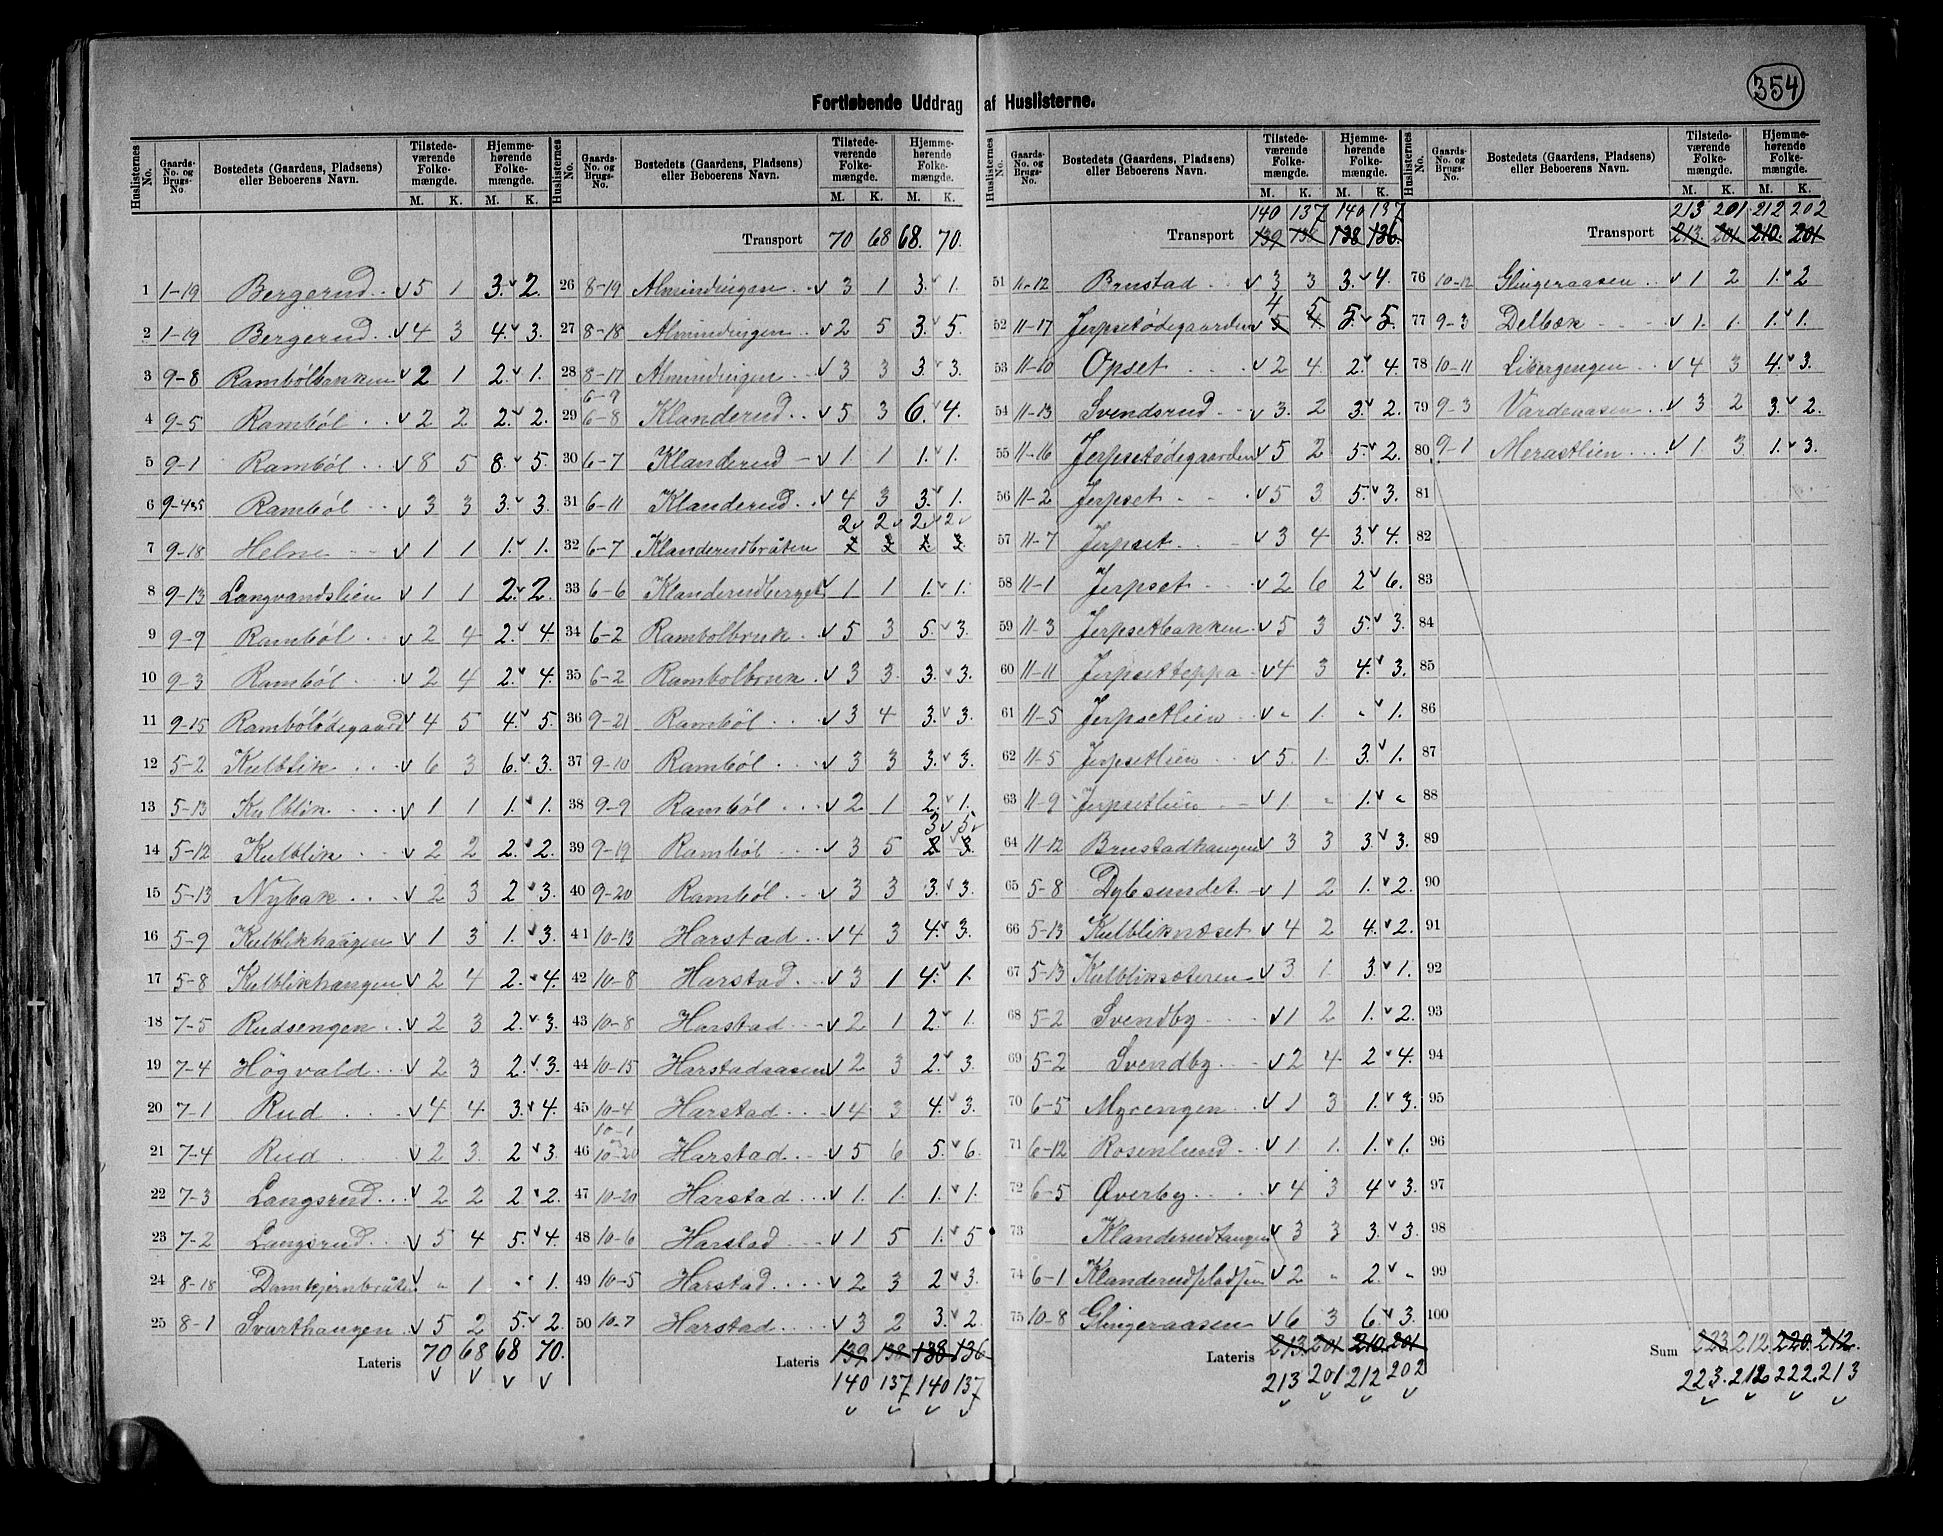 354
Fortløbende Uddrag af Huslisterne.
Huslisternes No. Gaards-No. og Brugs-No. Bostedets (Gaardens, Pladsens) eller Beboerens Navn. Tilstede-værende Folke-mængde. M. K. Hjemme-hørende Folke-mængde. M. K.
1 1-19 Bergerud 5 1 3. 2.
2 1-19 Bergerud 4 3 4. 3.
3 9-8 Rambölbakken 2 1 2. 1.
4 9-5 Ramböl 2 2 2. 2.
5 9-1 Ramböl 8 5 8. 5.
6 9-4 Ramböl 3 3 3. 3.
7 9-18 Helne 1 1 1. 1.
8 9-13 Langvandslien 1 1 2. 2.
9 9-9 Ramböl 2 4 2. 4.
10 9-3 Ramböl 2 4 2. 4.
11 9-15 Rambölödegaard 4 5 4. 5.
12 5-2 Kulblik 6 3 6. 3.
13 5-13 Kulblik 1 1 1. 1.
14 5-12 Kulblik 2 2 2. 2.
15 5-13 Nybak 2 3 2 3.
16 5-9 Kulblikhaugen 1 3 1. 3.
17 5-8 Kulblikhaugen 2 4 2. 4.
18 7-5 Rudsengen 2 3 2. 3.
19 7-4 Högvald 2 3 2. 3.
20 7-1 Rud 4 4 3. 4.
21 7-4 Rud 2 3 2 3.
22 7-3 Langsrud 2 2 2 2.
23 7-2 Langsrud 5 4 5. 4.
24 8-18 Damkjernbråten " 1 " 1.
25 8-1 Svarthaugen 5 2 5. 2.
Lateris 70 68 68 70.
Huslisternes No. Gaards-No. og Brugs-No. Bostedets (Gaardens, Pladsens) eller Beboerens Navn. Tilstede-værende Folke-mængde. M. K. Hjemme-hørende Folke-mængde. M. K.
Transport 70 68 68. 70.
26 8-19 Almindingen 3 1 3. 1.
27 8-18 Almindingen 2 5 3. 5.
28 8-17 Almindingen 3 3 3 3.
6-9
29 6-8 Klanderud 5 3 6. 4.
30 6-7 Klanderud 1 1 1. 1.
31 6-11 Klanderud 4 3 3. 1.
2 2 2 2
32 6-7 Klanderudbråten
33 6-6 Klanderudberget 1 1 1. 1.
34 6-2 Rambolbruk 5 3 5. 3.
35 6-2 Rambolbruk 3 3. 3. 3.
36 9-21 Ramböl 3 4 3. 3.
37 9-10 Ramböl 3 3 3. 3.
38 9-9 Ramböl 2 1 2. 1.
3 5
39 9-19 Ramböl 3 5 2 3.
40 9-20 Ramböl 3 3 3. 3.
41 10-13 Harstad 4 3 4. 3.
42 10-8 Harstad 3 1 4. 1.
43 10-8 Harstad 2 1 2. 1.
44 10-15 Harstadaasen 2 3 2. 3.
45 10-4 Harstad 4 3 4. 3.
10-1
46 10-20 Harstad 5 6 5. 6.
47 10-20 Harstad 1. 1. 1. 1.
48 10-6 Harstad 1 5 1. 5
49 10-5 Harstad 2 3 2 3.
50 10-7 Harstad 3 2 3. 2.
Lateris 139 138 138 136
140 137 140 137
Huslisternes No. Gaards-No. og Brugs-No. Bostedets (Gaardens, Pladsens) eller Beboerens Navn. Tilstede-værende Folke-mængde. M. K. Hjemme-hørende Folke-mængde. M. K.
140 137 140 137
Transport 139 138 138 136.
51 11-12 Brustad 3 3 3. 4.
4 5
52 11-17 Jerpsetödegaarden 5 4 5. 5.
53 11-10 Opset 2 4 2. 4.
54 11-13 Svendsrud 3. 2 3. 2.
55 11-16 Jerpsetödegaarden 5 2 5. 2.
56 11-2 Jerpset 5 3 5. 3.
57 11-7 Jerpset 3 4 3. 4.
58 11-1 Jerpset 2 6 2 6.
59 11-3 Jerpsetbakken 5 3 5. 3.
60 11-11 Jerpsetteppa 4 3 4. 3.
61 11-5 Jerpsetlien " 1. " 1.
62 11-5 Jerpsetlien 5. 1. 3. 1.
63 11-9 Jerpsetlien 1. " 1. "
64 11-12 Brustadhaugen 3 3 3 3.
65 5-8 Dybsundet 1 2 1. 2.
66 5-13 Kulbliknæset 4 2 4. 2.
67 5-13 Kulbliksæteren 3 1. 3. 1.
68 5-2 Svendby 1 2 1. 2.
69 5-2 Svendby 2 4 2 4.
70 6-5 Myrengen 1 3 1. 3.
71 6-12 Rosenlund 1. 1. 1. 1.
72 6-5 Øverby 4 3 4 3.
73 Klanderudtangen 3 3 3. 3.
74 6-1 Klanderudpladsen 2 " 2. "
75 10-8 Glingeraasen 6 3 6. 3.
Lateris 213 201 210. 201
213 201 212 202
Huslisternes No. Gaards-No. og Brugs-No. Bostedets (Gaardens, Pladsens) eller Beboerens Navn. Tilstede-værende Folke-mængde. M. K. Hjemme-hørende Folke-mængde. M. K.
213 201 212 202
Transport 213. 201. 210. 201
76 10-12 Glingeraasen 1 2 1. 2
77 9-3 Delbæk 1. 1. 1. 1.
78 10-11 Libergengen 4 3 4. 3.
79 9-3 Vardeaasen 3 2 3. 2.
80 9-1 Merastlien 1. 3 1. 3.
81
82
83
84
85
86
87
88
89
90
91
92
93
94
95
96
97
98
99
100
Sum 223 212 220. 212.
223. 212 222. 213